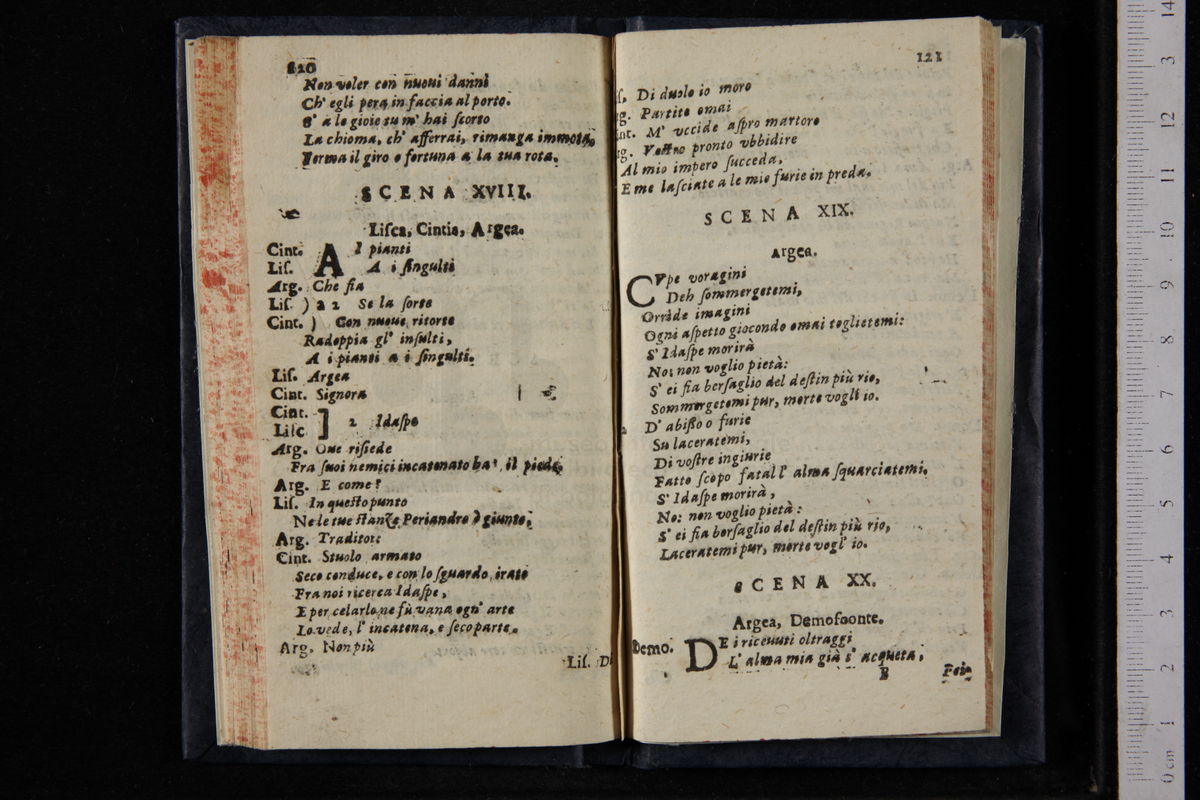 120
Non voler con nuoui danni
Ch' egli pera in faccia al porto.
S' a le gioie tu m' hai ſcorto
La chioma, ch' afferrai, rimanga immota,
Ferma il giro o fortuna a la tua rota.
SCENA XVIII.
Liſca, Cintia, Argea.
Cint. A I pianti
Liſ. A i ſingulti
Arg. Che fia
Liſ. ) a 2 Se la ſorte
Cint. ) Con nuoue ritorte
Radoppia gl' inſulti,
A i pianti a i ſingulti.
Liſ. Argea
Cint. Signora
Cint.
Liſc. ] 2 Idaſpe
Arg. Oue riſiede
Fra ſuoi nemici incatenato ha' il piede.
Arg. E come?
Liſ. In queſto punto
Ne le tue ſtanze Periandro è giunto.
Arg. Traditor:
Cint. Stuolo armato
Seco conduce, e con lo ſguardo irato
Fra noi ricerca Idaſpe,
E per celarlo ne fù vana ogn' arte
Lo vede, l' incatena, e ſeco parte.
Arg. Non più
Liſ. Di
121
iſ. Di duolo io moro
rg. Partite omai
int. M' vccide aſpro martoro
rg. Voſtro pronto vbbidire
Al mio impero ſucceda,
E me laſciate a le mie furie in preda.
SCENA XIX.
Argea.
CVpe voragini
Deh ſommergetemi,
Orride imagini
Ogni aſpetto giocondo omai toglietemi:
S' Idaſpe morirà
No: non voglio pietà:
S' ei fia berſaglio del deſtin più rio,
Sommergetemi pur, morte vogli io.
D' abiſſo o furie
Su laceratemi,
Di voſtre ingiurie
Fatto ſcopo fatal l' alma ſquarciatemi.
S' Idaſpe morirà,
No: non voglio pietà:
S' ei fia berſaglio del deſtin più rio,
Laceratemi pur, morte vogl' io.
SCENA XX.
Argea, Demofoonte.
Demo. DE i riceuuti oltraggi
L' alma mia già s' acqueta,